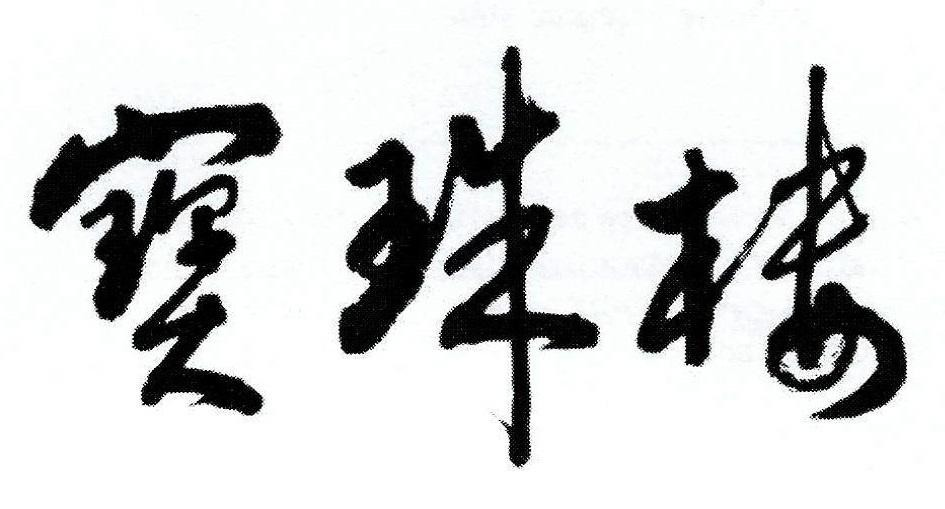 寶珠樓